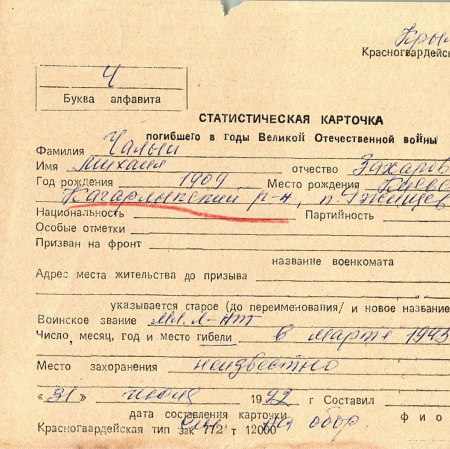 Крым
Красногвардейс
Ч
Буква алфавита
СТАТИСТИЧЕСКАЯ КАРТОЧКА
погибшего в годы Великой Отечественной войны
Фамилия Чалый
Имя Михаил отчество Захаров
Год рождения 1909 Место рождения Киевс
Кагарлыкский р-н, п. Ржищев
Национальность Партийность
Особые отметки
Призван на фронт
название военкомата
Адрес места жительства до призыва
указывается старое (до переименования/ и новое название
Воинское звание мл. л-нт
Число, месяц, год и место гибели в марте 1943
Место захоронения неизвестно
« 31 » июля 1992 г Составил
дата составления карточки ф и о
Красногвардейская тип зак 772 т 12000
См. на обор.